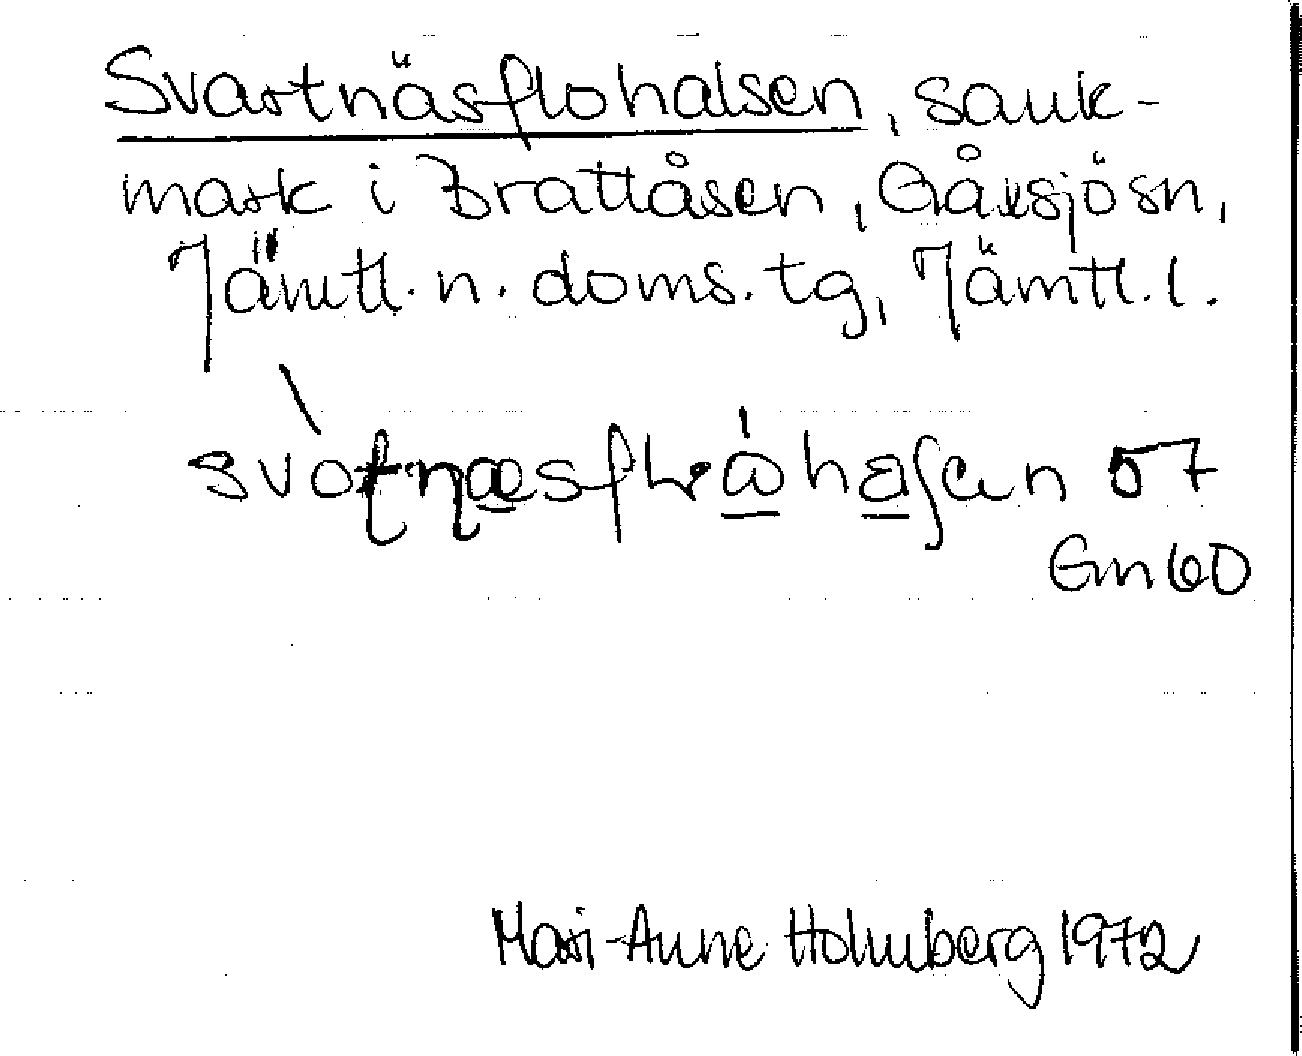 Svartnäsflohalsen, sank-
mark i Brattåsen, Gåxsjösn,
Jämtl. n. doms. tg, Jämtl. l.
57
Gm 60
Mari-Anne Holmberg 1972